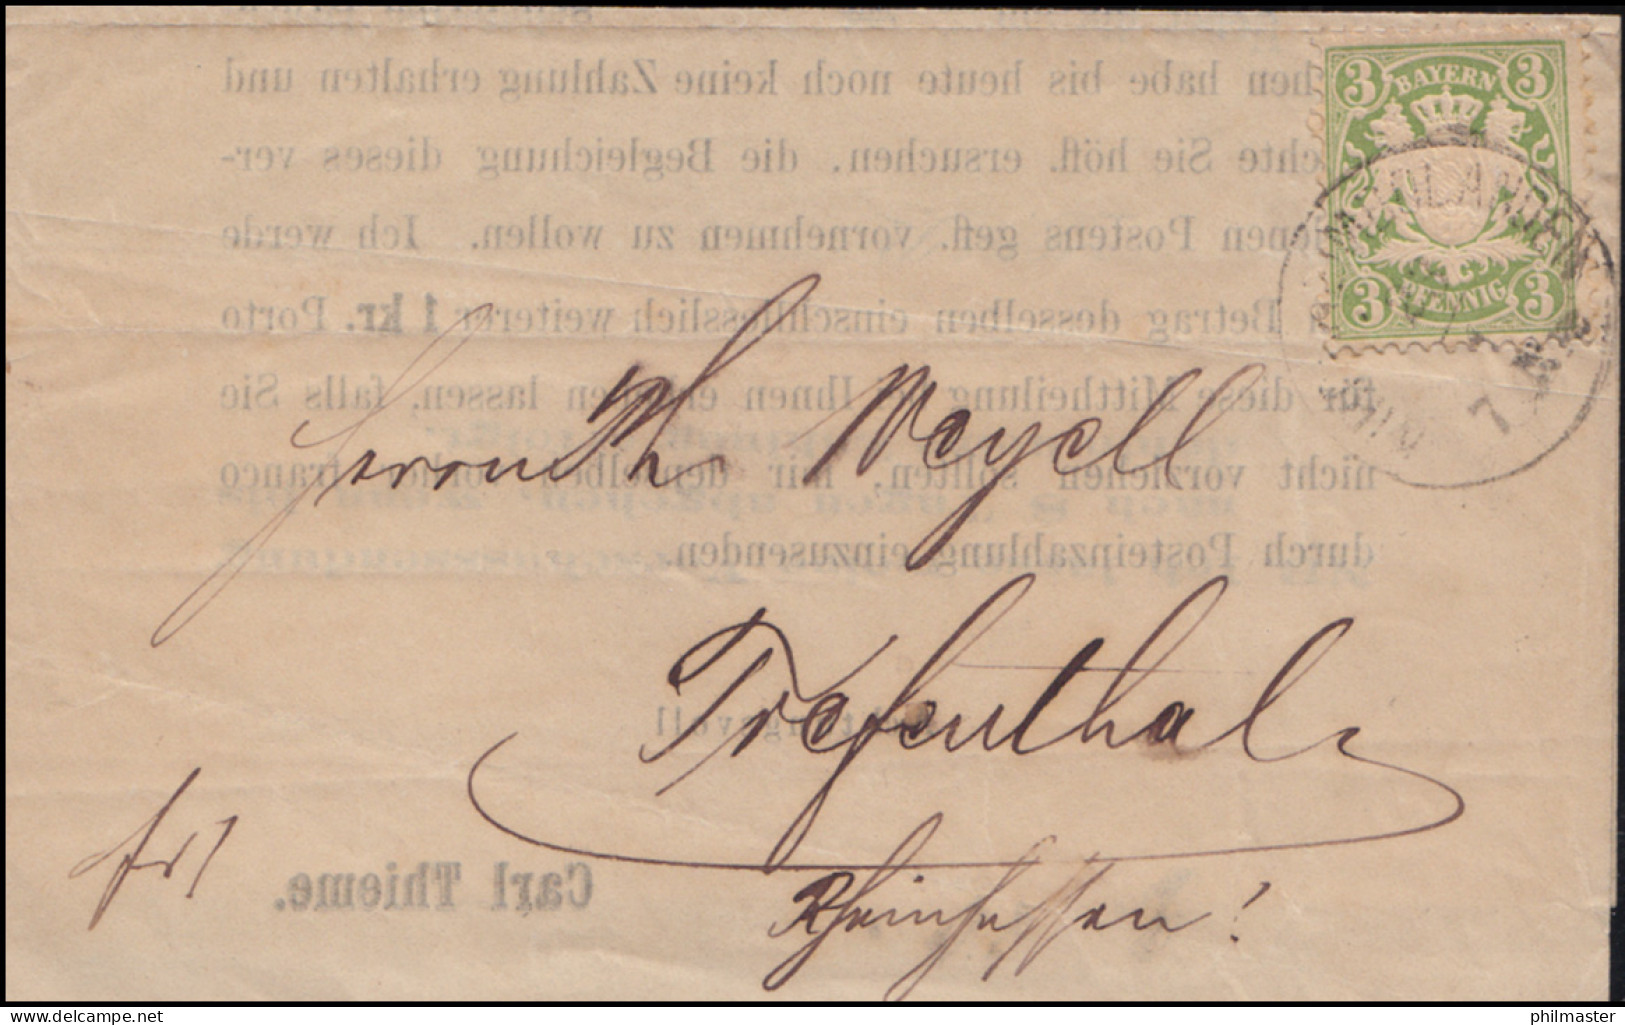 chen habe bis heute noch keine Zahlung erhalten und
chte Sie höfl. ersuchen, die Begleichung dieses ver-
enen Postens gefl. vornehmen zu wollen. Ich werde
Betrag desselben einschliesslich weiterer 1 kr. Porto
für diese Mittheilung Ihnen lassen, falls Sie
nicht vorziehen sollten, mir denselben franco
durch Posteinzahlung einzusenden.
3 BAYERN 3
3 PFENNIG 3
7
Weyell
Trefenthal
Carl Thieme.
Rheinhessen!
philmaster